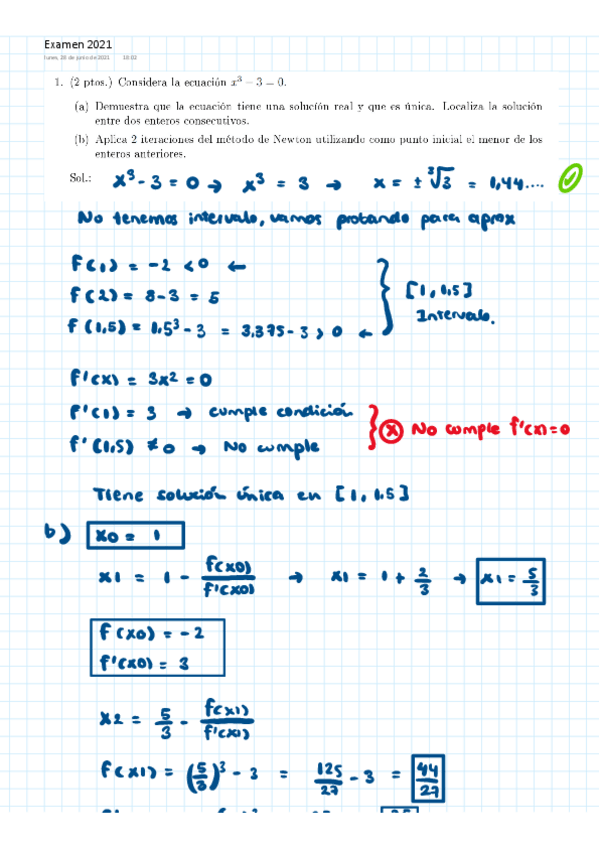 Examen 2021
lunes, 28 de junio de 2021 18:02
1. (2 ptos.) Considera la ecuación x³ − 3 = 0.
(a) Demuestra que la ecuación tiene una solución real y que es única. Localiza la solución
entre dos enteros consecutivos.
(b) Aplica 2 iteraciones del método de Newton utilizando como punto inicial el menor de los
enteros anteriores.
Sol.: x³ - 3 = 0 → x³ = 3 → x = ± ∛3 = 1,44....
No tenemos intervalo, vamos probando para aprox
f(1) = -2 < 0 ←
f(2) = 8-3 = 5
f(1,5) = 1,5³ - 3 = 3,375 - 3 > 0 ←
[1, 1.5]
Intervalo.
f'(x) = 3x² = 0
f'(1) = 3 → cumple condición
f'(1,5) ≠ 0 → No cumple
No cumple f'(x)=0
Tiene solución única en [1, 1.5]
b) x0 = 1
x1 = 1 - f(x0)/f'(x0) → x1 = 1 + 2/3 → x1 = 5/3
f(x0) = -2
f'(x0) = 3
x2 = 5/3 - f(x1)/f'(x1)
f(x1) = (5/3)³ - 3 = 125/27 - 3 = 44/27